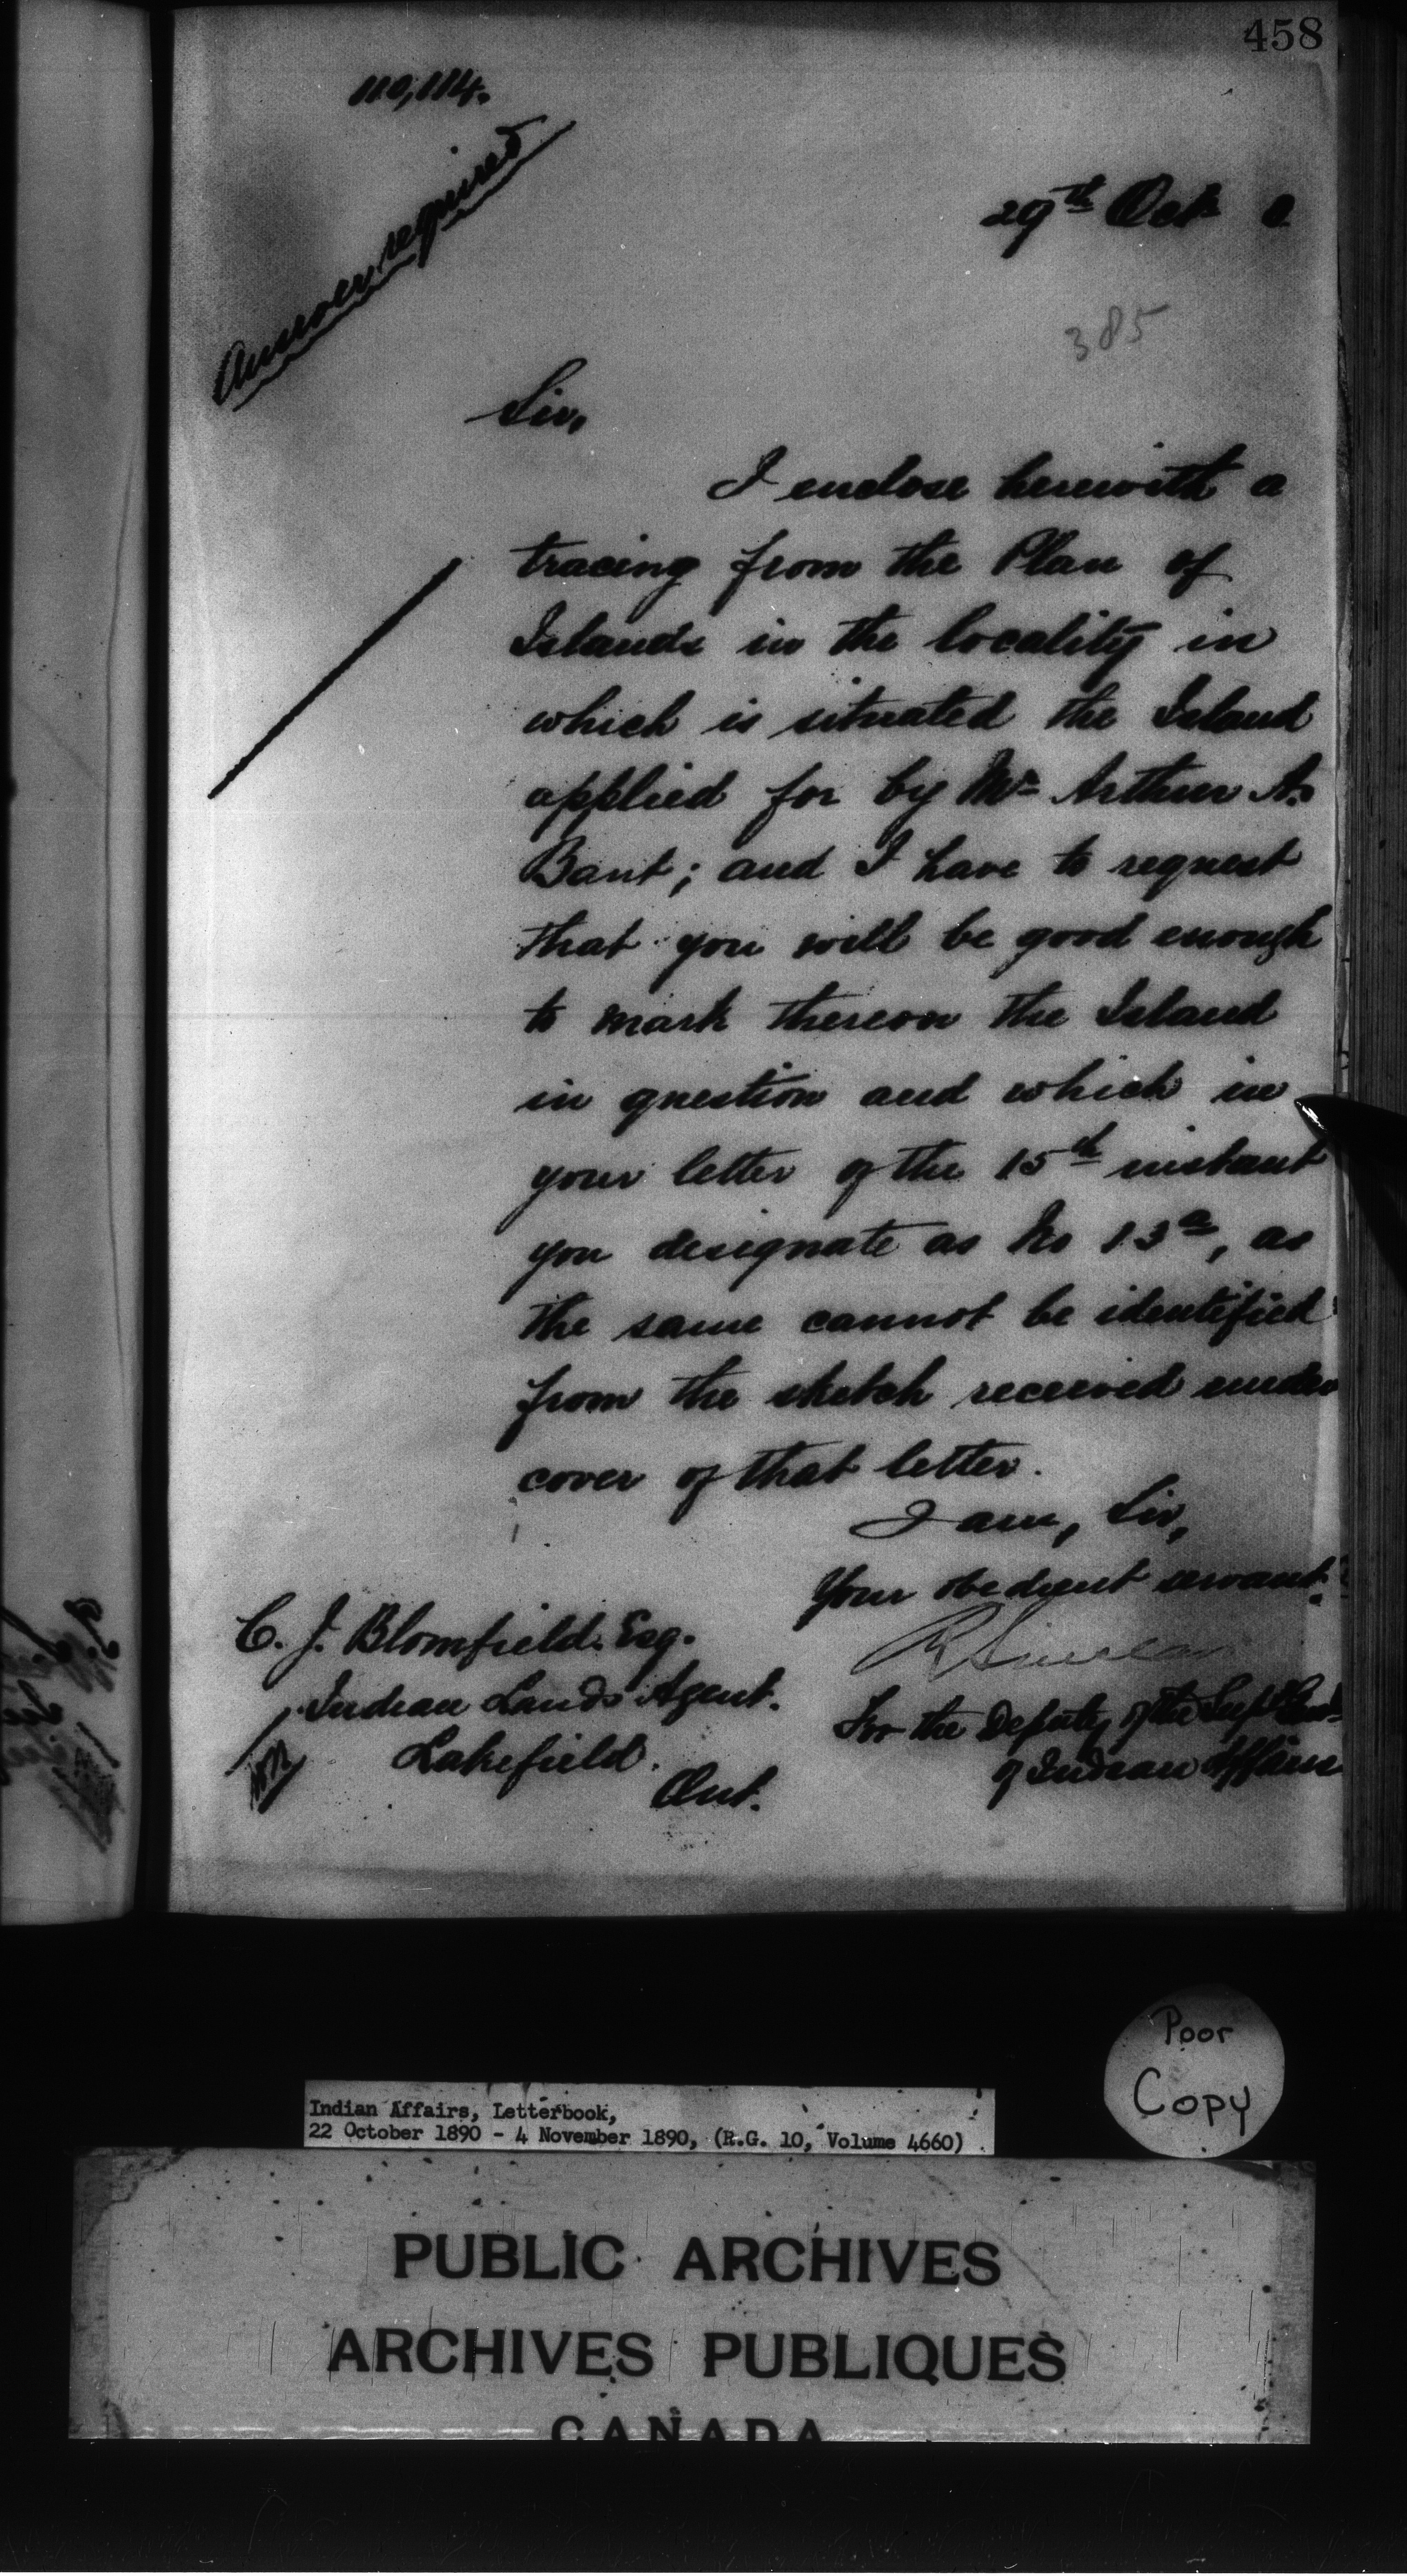 458
110,114.
Answer required
29th Oct 0
385
Sir,
I enclose herewith a
tracing from the Plan of
Islands in the locality in
which is situated the Island
applied for by Mr Arthur A.
Bant; and I have to request
that you will be good enough
to mark thereon the Island
in question and which in
your letter of the 15th instant
you designate as No 13a, as
the same cannot be identified
from the sketch received under
cover of that letter.
I am, Sir,
Your obedient servant.
R Sinclair
For the Deputy of the Supt Genl
of Indian Affairs
C. J. Blomfield. Esq.
Indian Lands Agent.
Lakefield.
Ont.
Poor
Copy
Indian Affairs, Letterbook,
22 October 1890 - 4 November 1890, (R.G. 10, Volume 4660)
PUBLIC ARCHIVES
ARCHIVES PUBLIQUES
CANADA